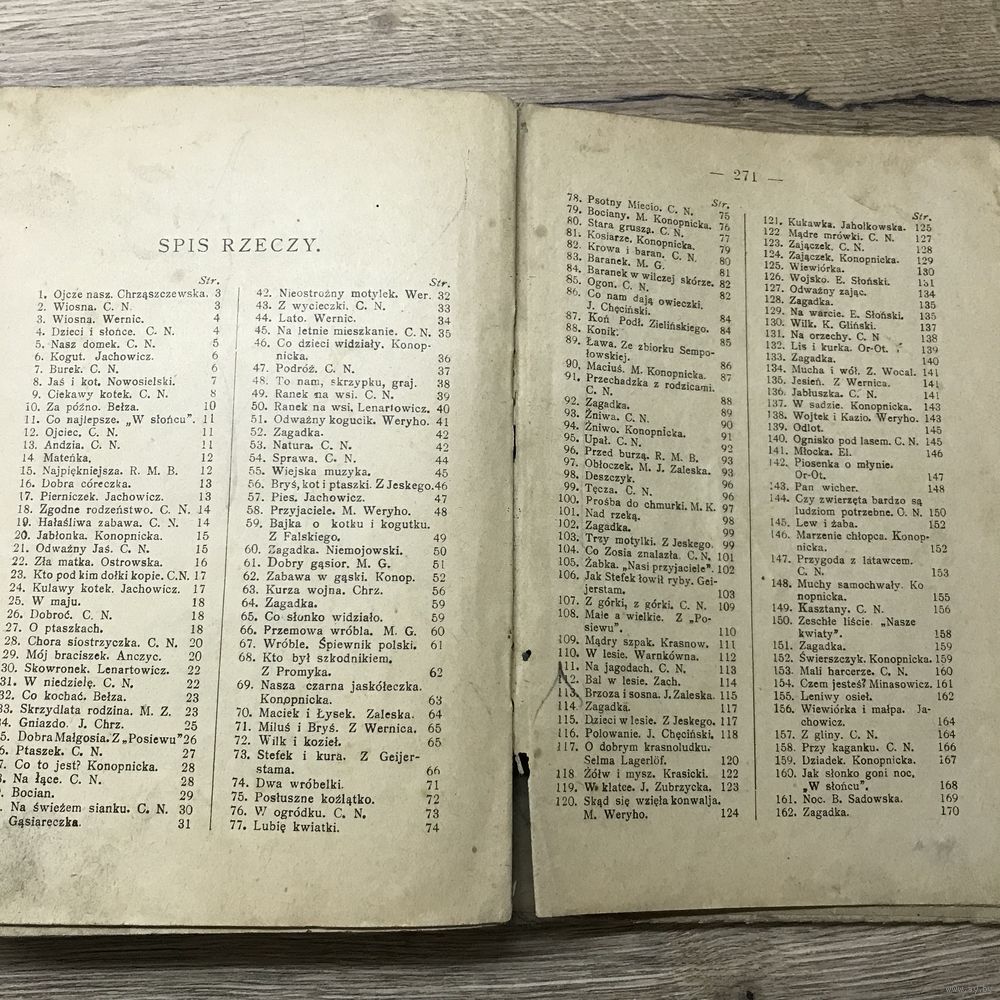 SPIS RZECZY.
Str.
1. Ojcze nasz. Chrząszczewska. 3
2. Wiosna. C. N. 3
3. Wiosna. Wernic. 4
4. Dzieci i słońce. C. N. 4
5. Nasz domek. C. N. 5
6. Kogut. Jachowicz. 6
7. Burek. C. N. 6
8. Jaś i kot. Nowosielski. 7
9. Ciekawy kotek. C. N. 8
10. Za późno. Bełza. 10
11. Co najlepsze. „W słońcu". 11
12. Ojciec. C. N. 11
13. Andzia. C. N. 11
14 Mateńka. 12
15. Najpiękniejsza. R. M. B. 12
16. Dobra córeczka. 13
17. Pierniczek. Jachowicz. 13
18. Zgodne rodzeństwo. C. N. 14
19. Hałaśliwa zabawa. C. N. 14
20. Jabłonka. Konopnicka. 15
21. Odważny Jaś. C. N. 15
22. Zła matka. Ostrowska. 16
23. Kto pod kim dołki kopie. C.N. 17
24. Kulawy kotek. Jachowicz. 17
25. W maju. 18
26. Dobroć. C. N. 18
27. O ptaszkach. 18
28. Chora siostrzyczka. C. N. 20
29. Mój braciszek. Anczyc. 20
30. Skowronek. Lenartowicz. 22
31. W niedzielę. C. N. 22
32. Co kochać. Bełza. 23
33. Skrzydlata rodzina. M. Z. 23
34. Gniazdo. J. Chrz. 25
5. Dobra Małgosia. Z „Posiewu" 26
6. Ptaszek. C. N. 27
7. Co to jest? Konopnicka. 28
Na łące. C. N. 28
Bocian. 29
Na świeżem sianku. C. N. 30
Gąsiareczka. 31
Str.
42. Nieostrożny motylek. Wer. 32
43. Z wycieczki. C. N. 33
44. Lato. Wernic. 34
45. Na letnie mieszkanie. C. N. 35
46. Co dzieci widziały. Konop-
nicka. 36
47. Podróż. C. N. 37
48. To nam, skrzypku, graj. 38
49. Ranek na wsi. C. N. 39
50. Ranek na wsi, Lenartowicz. 40
51. Odważny kogucik. Weryho. 41
52. Zagadka. 42
53. Natura. C. N. 42
54. Sprawa. C. N. 44
55. Wiejska muzyka. 45
56. Bryś, kot i ptaszki. Z Jeskego. 46
57. Pies. Jachowicz. 47
58. Przyjaciele. M. Weryho. 48
59. Bajka o kotku i kogutku.
Z Falskiego. 49
60. Zagadka. Niemojowski. 50
61. Dobry gąsior. M. G. 51
62. Zabawa w gąski. Konop. 52
63. Kurza wojna. Chrz. 56
64. Zagadka. 59
65. Co słonko widziało. 59
66. Przemowa wróbla. M. G. 60
67. Wróble. Śpiewnik polski. 61
68. Kto był szkodnikiem.
Z Promyka. 62
69. Nasza czarna jaskółeczka.
Konopnicka. 63
70. Maciek i Łysek. Zaleska. 64
71. Miluś i Bryś. Z Wernica. 65
72. Wilk i kozieł. 65
73. Stefek i kura. Z Geijer-
stama. 66
74. Dwa wróbelki. 71
75. Posłuszne koźlątko. 72
76. W ogródku. C. N. 73
77. Lubię kwiatki. 74
— 271 —
Str.
78. Psotny Miecio. C. N. 75
79. Bociany. M. Konopnicka. 76
80. Stara grusza. C. N. 77
81. Kosiarze. Konopnicka. 79
82. Krowa i baran. C. N. 80
83. Baranek. M. G. 81
84. Baranek w wilczej skórze. 82
85. Ogon. C. N. 82
86. Co nam dają owieczki.
J. Chęciński. 84
87. Koń Podł. Zielińskiego. 84
88. Konik. 85
89. Ława. Ze zbiorku Sempo-
łowskiej. 86
90. Maciuś. M. Konopnicka. 87
91. Przechadzka z rodzicami.
C. N. 88
92. Zagadka. 89
93. Żniwa. C. N. 90
94. Żniwo. Konopnicka. 91
95. Upał. C. N. 92
96. Przed burzą. R. M. B. 93
97. Obłoczek. M. J. Zaleska. 93
98. Deszczyk. 96
99. Tęcza. C. N. 96
100. Prośba do chmurki. M. K. 97
101. Nad rzeką. 98
102. Zagadka. 99
103. Trzy motylki. Z Jeskego. 99
104. Co Zosia znalazła. C. N. 101
105. Żabka. „Nasi przyjaciele". 102
106. Jak Stefek łowił ryby. Gei-
jerstam. 103
107. Z górki, z górki. C. N. 109
108. Małe a wielkie. Z „Po-
siewu". 110
109. Mądry szpak. Krasnow. 111
110. W lesie. Warnkówna. 112
111. Na jagodach. C. N. 113
112. Bal w lesie. Zach. 114
113. Brzoza i sosna. J. Zaleska. 115
114. Zagadka. 117
115. Dzieci w lesie. Z Jeskego. 117
116. Polowanie. J. Chęciński. 118
117. O dobrym krasnoludku.
Selma Lagerlöf. 120
118 Żółw i mysz. Krasicki. 122
119. W klatce. J. Zubrzycka. 123
120. Skąd się wzięła konwalja.
M. Weryho. 124
Str.
121. Kukawka. Jahołkowska. 125
122 Mądre mrówki. C. N. 127
123. Zajączek. C. N. 128
124. Zajączek. Konopnicka. 129
125. Wiewiórka. 130
126. Wojsko. E. Słoński. 131
127. Odważny zając. 134
128. Zagadka. 135
129. Na warcie. E. Słoński. 135
130. Wilk. K. Gliński. 137
131. Na orzechy. C. N 138
132. Lis i kurka. Or-Ot. 139
133. Zagadka. 140
134. Mucha i wół. Z. Wocal. 141
135. Jesień. Z Wernica. 141
136. Jabłuszka. C. N. 141
137. W sadzie. Konopnicka. 143
138. Wojtek i Kazio. Weryho. 143
139. Odlot. 145
140. Ognisko pod lasem. C. N. 145
141. Młocka. El. 146
142. Piosenka o młynie.
Or-Ot. 147
143. Pan wicher. 148
144. Czy zwierzęta bardzo są
ludziom potrzebne. C. N. 150
145. Lew i żaba. 152
146. Marzenie chłopca. Konop-
nicka. 152
147. Przygoda z latawcem.
C. N. 153
148. Muchy samochwały. Ko
nopnicka. 155
149. Kasztany. C. N. 156
150. Zeschłe liście. „Nasze
kwiaty". 158
151. Zagadka. 159
152. Świerszczyk. Konopnicka. 159
153. Mali harcerze. C. N. 160
154. Czem jesteś? Minasowicz. 161
155. Leniwy osieł. 162
156. Wiewiórka i małpa. Ja-
chowicz. 164
157. Z gliny. C. N. 164
158. Przy kaganku. C. N. 166
159. Dziadek. Konopnicka. 167
160. Jak słonko goni noc.
„W słońcu". 168
161. Noc. B. Sadowska. 169
162. Zagadka. 170
www.ay.by